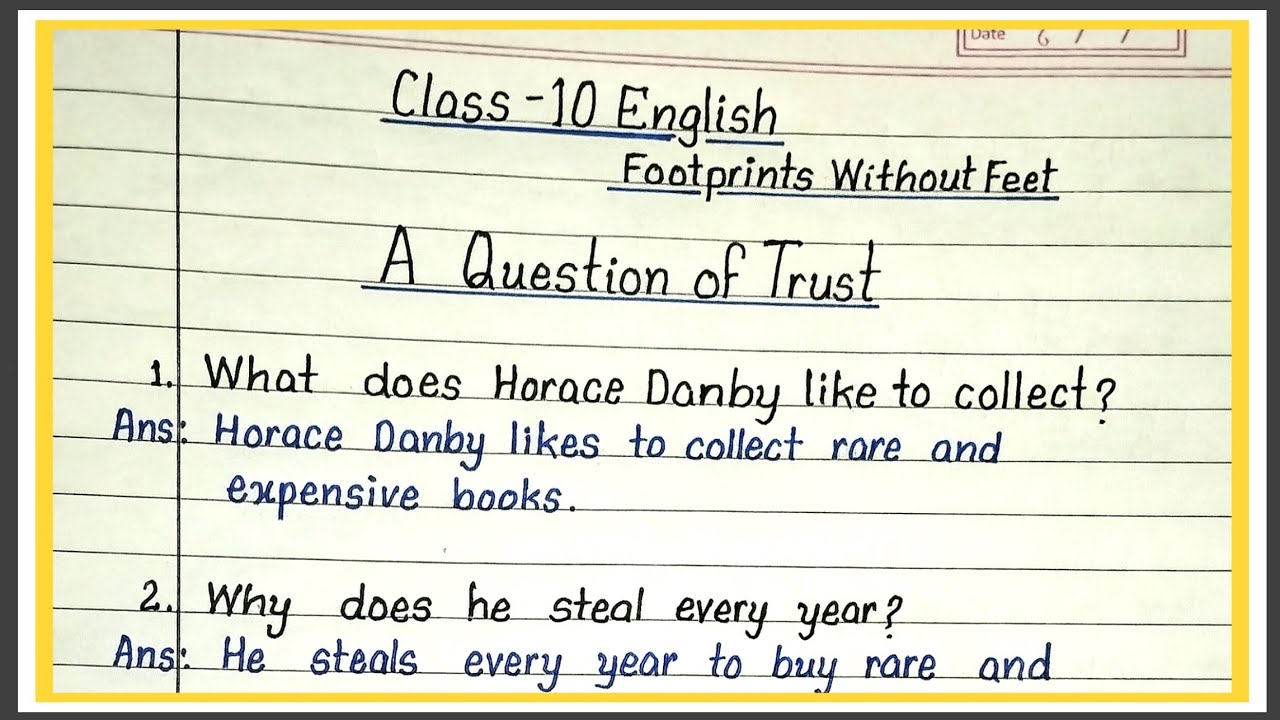 Date 6 / /
Class -10 English
Footprints Without Feet
A Question of Trust
1. What does Horace Danby like to collect?
Ans: Horace Danby likes to collect rare and
expensive books.
2. Why does he steal every year?
Ans: He steals every year to buy rare and